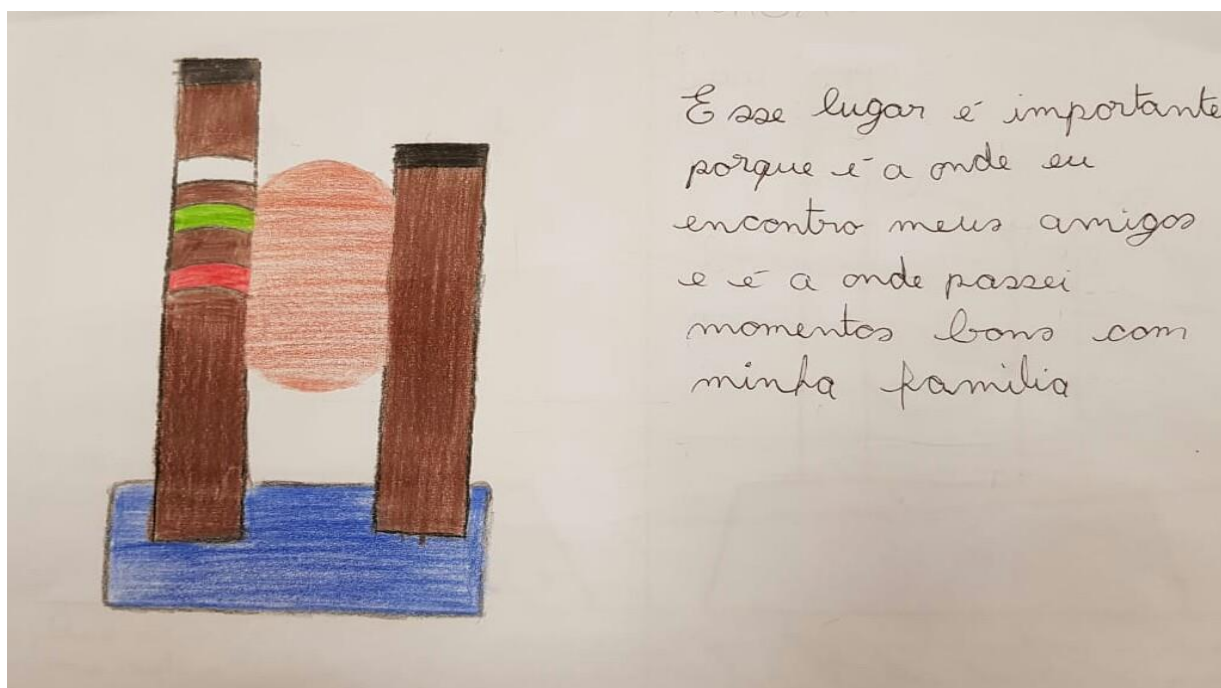 Esse lugar é importante
porque é a onde eu
encontro meus amigos
e é a onde passei
momentos bons com
minha familia